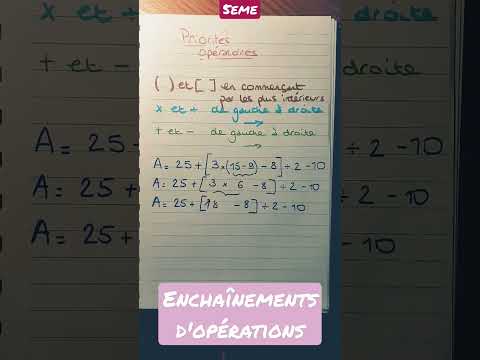 5EME
Priorités
opératoires
( ) et [ ] en commençant
par les plus intérieurs
× et ÷ de gauche à droite
+ et − de gauche à droite
A = 25 + [3 × (15 − 9) − 8] ÷ 2 − 10
A = 25 + [3 × 6 − 8] ÷ 2 − 10
A = 25 + [18 − 8] ÷ 2 − 10
ENCHAÎNEMENTS
D'OPÉRATIONS